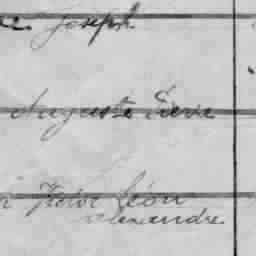 Joseph
Auguste Pierre
Léon
alexandre